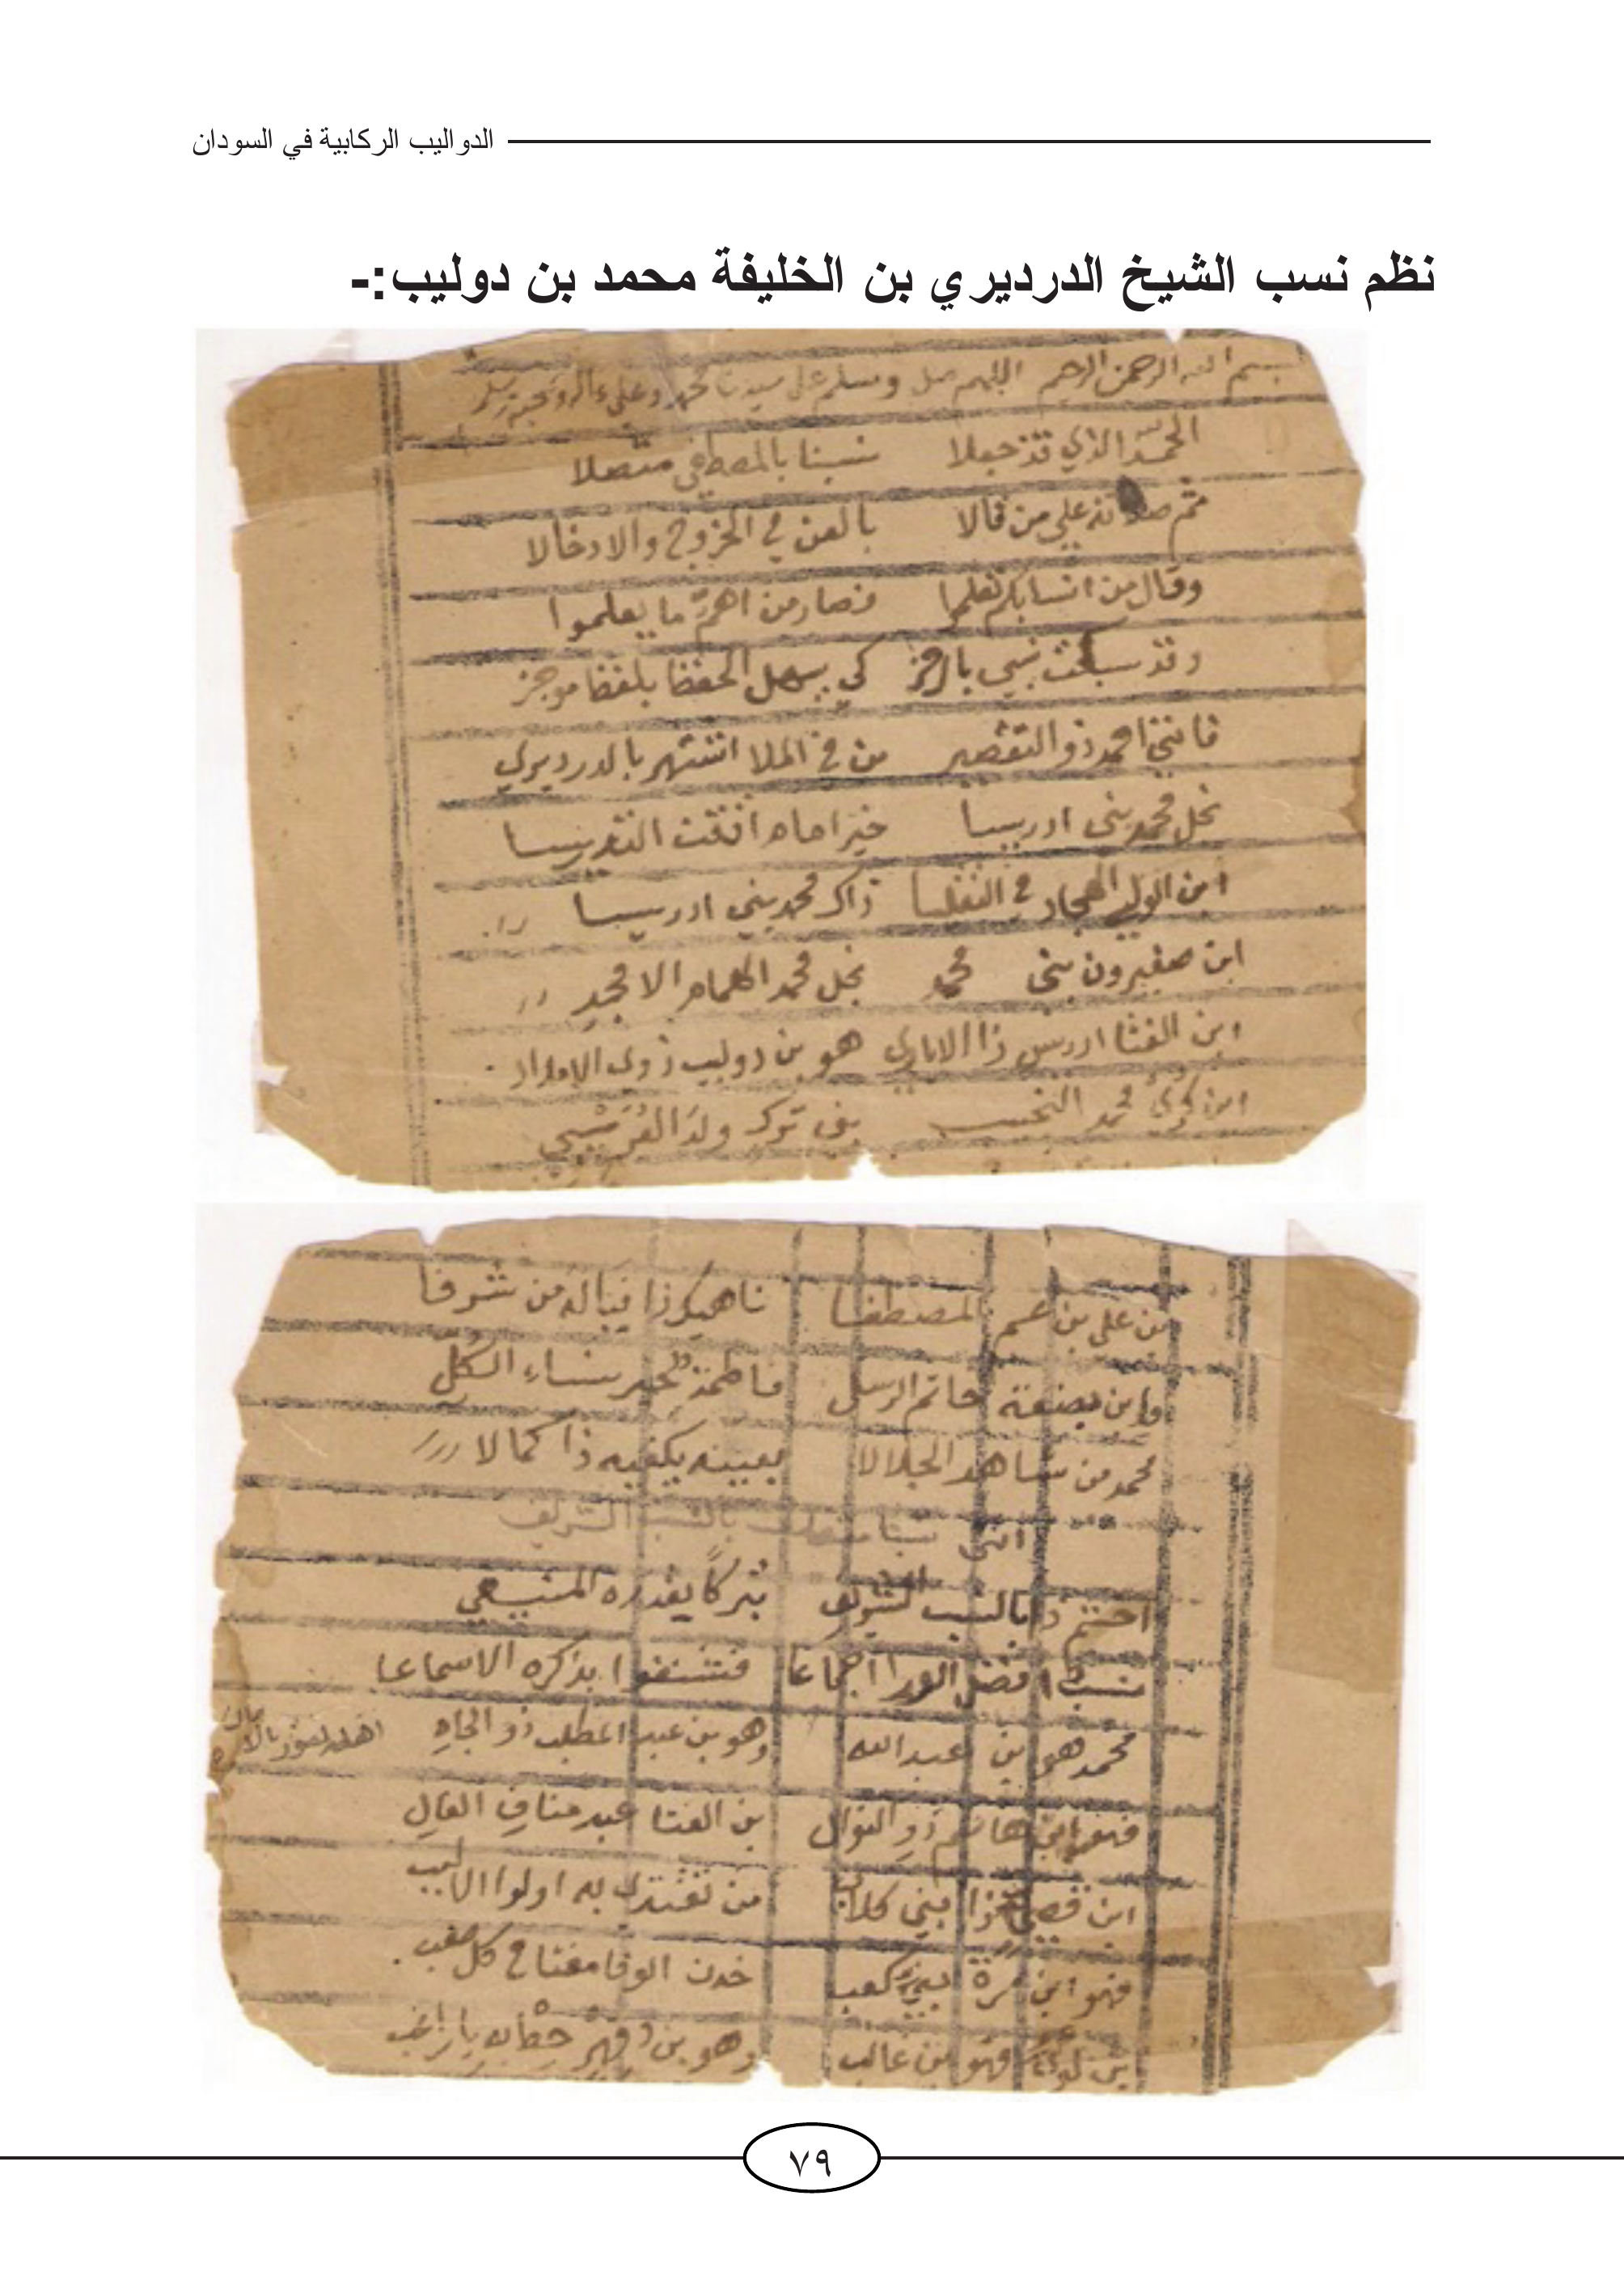 الدواليب الركابية في السودان
نظم نسب الشيخ الدرديري بن الخليفة محمد بن دوليب:-
بسم الله الرحمن الرحيم اللهم صل وسلم على سيدنا محمد وعلى
الحمد الذي قد جعلا نسبنا بالمصطفى متصلا
ثم صلاته على من قالا بالعن في الخروج والادخالا
وقال من انسابكم تعلموا فصار من اهم ما يعلموا
وقد سبكت نسبي بالرجز كي يسهل الحفظ بلفظ موجز
فانني احمد ذو التقصير من في الملا اشتهر بالدرديري
نجل محمد بني ادريسا خير امام
ابن الولي في ذاك محمد بني ادريسا
ابن صغيرون بني محمد نجل محمد الهمام الامجد
ابن الفتا ادريس ذا الايادي هو بن دوليب ذوى الامداد
ابن محمد
من علي بن عم المصطفا ناهيك ذا فياله من شرفا
وابن بضعة خاتم الرسل فاطمة خير نساء الكل
محمد من شاهد الجلالا بعينه يكفيه ذا كمالا
بالنسب الشريف
اختم ذا بالنسب الشريف تبركا
نسب افضل الورا اجماعا فشنفوا بذكره الاسماعا
محمد هو بن عبد الله وهو بن عبد المطلب ذو الجاه
فهو ابن هاشم ذو النوال بن الفتا عبد مناف العال
ابن قصي بني كلاب من تقتدى به اولوا
فهو ابن مرة بني كعب خدن الوفا مفتاح كل صعب
بن لوي فهو بن غالب وهو بن فهر
٧٩